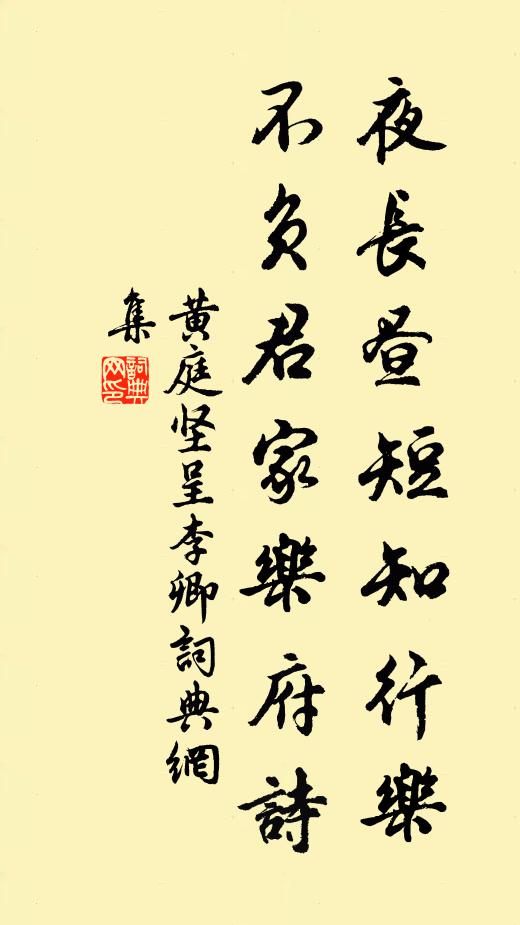 夜長昼短知行樂
不負君家樂府詩
黄庭坚呈李卿詞典網
集
詞典网印